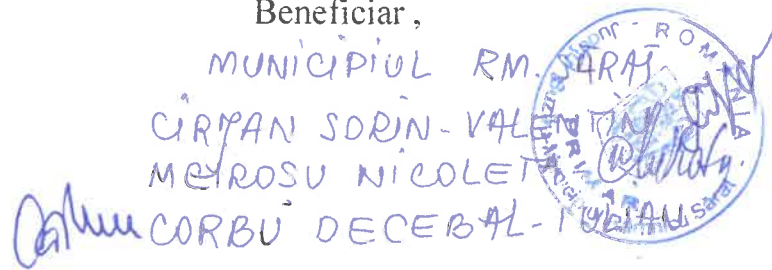 Beneficiar,
MUNICIPIUL RM. SĂRAT
CÎRJAN SORIN-VALENTIN
METROSU NICOLETA
CORBU DECEBAL-IULIAN
ROMÂNIA